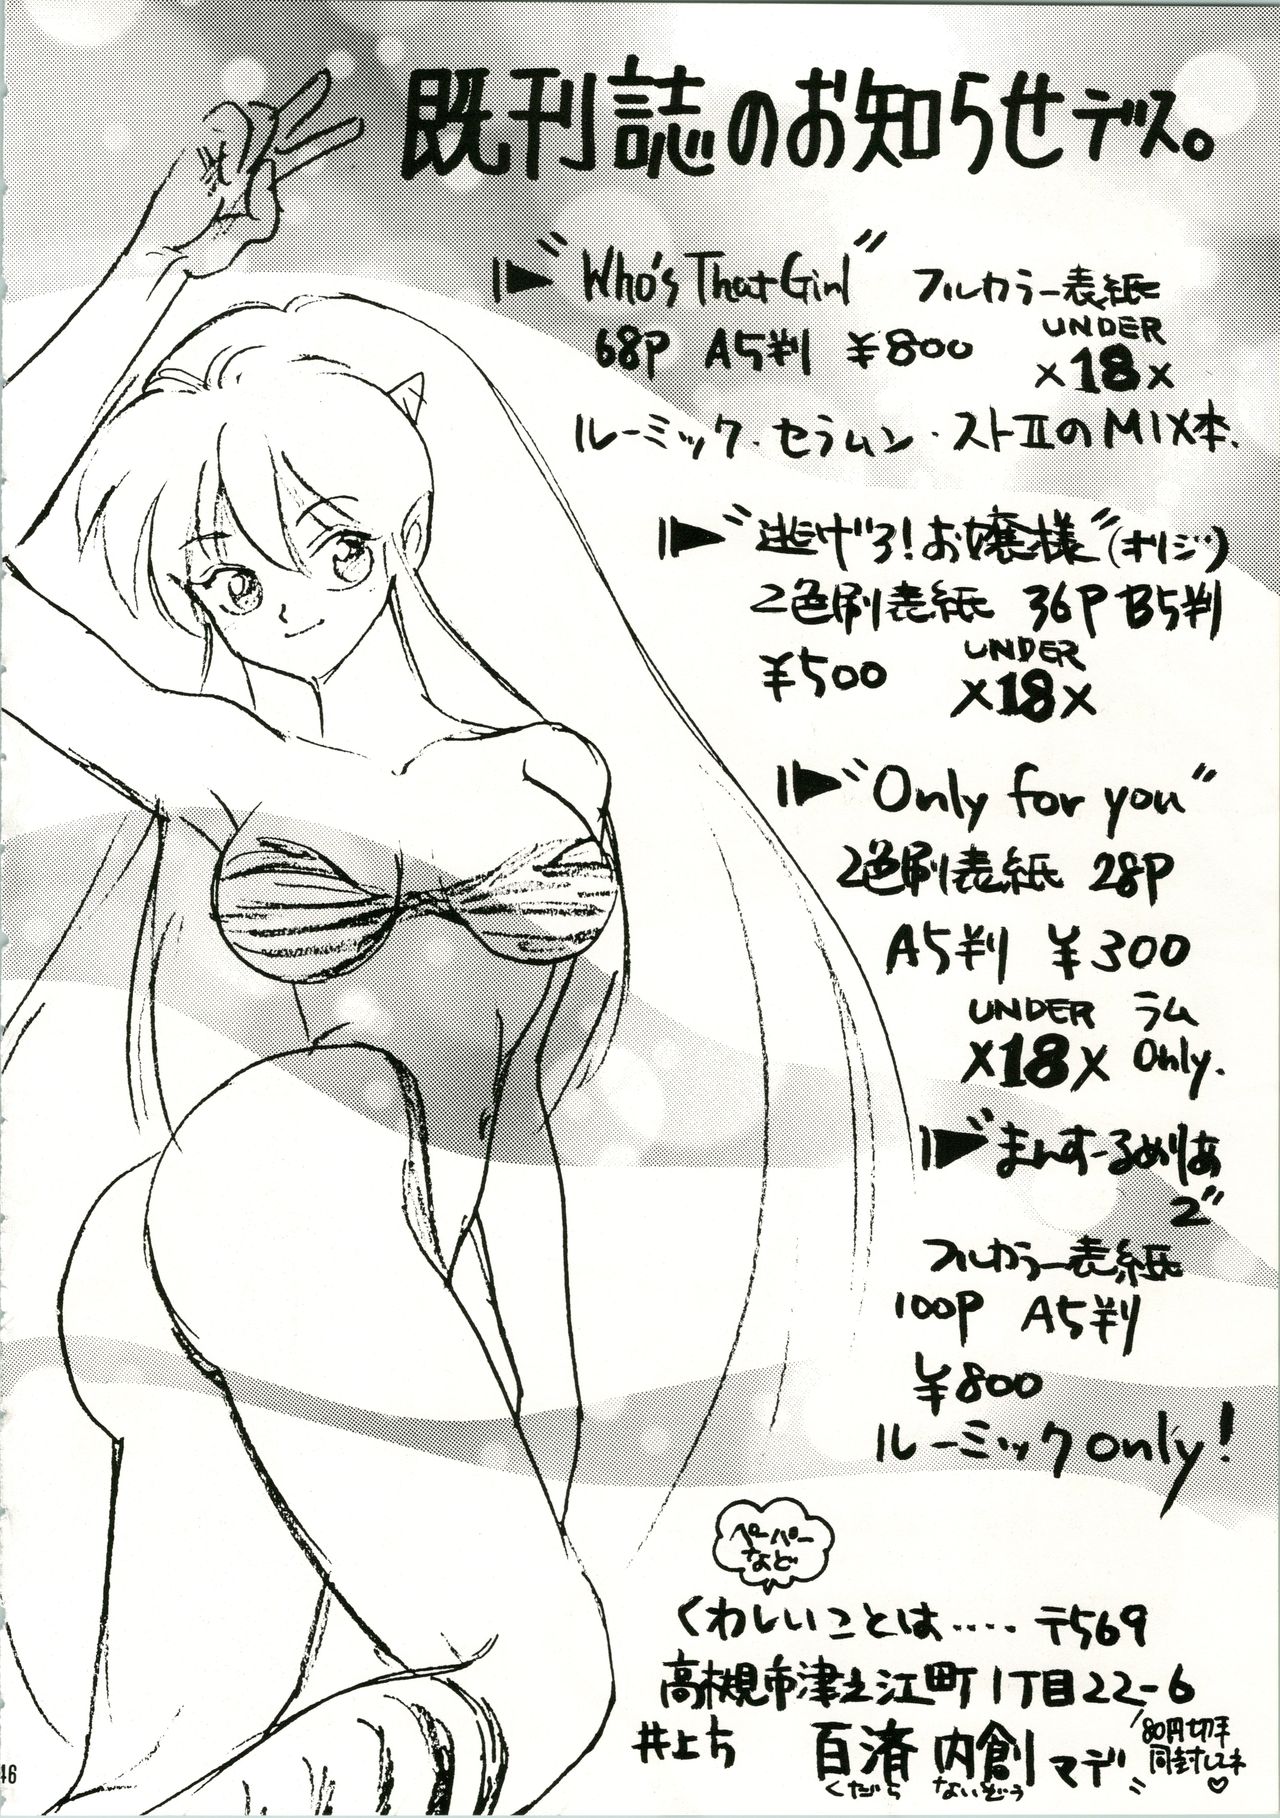 既刊誌のお知らせデス。
"Who's That Girl" フルカラー表紙
68P A5判 ¥800 UNDER
×18×
ルーミック・セラムン・ストIIのMIX本.
"逃げろ!お嬢様"(オリジ)
2色刷表紙 36P B5判
¥500 UNDER
×18×
"Only for you"
2色刷表紙 28P
A5判 ¥300
UNDER ラム
×18× Only.
"まんすーるめりあ
2"
フルカラー表紙
100P A5判
¥800
ルーミックonly!
ペーパー
など
くわしいことは····· 〒569
高槻市津之江町1丁目22-6
井上方 百済 内創 マデ
くだら ないぞう
80円切手
同封してネ♡
46